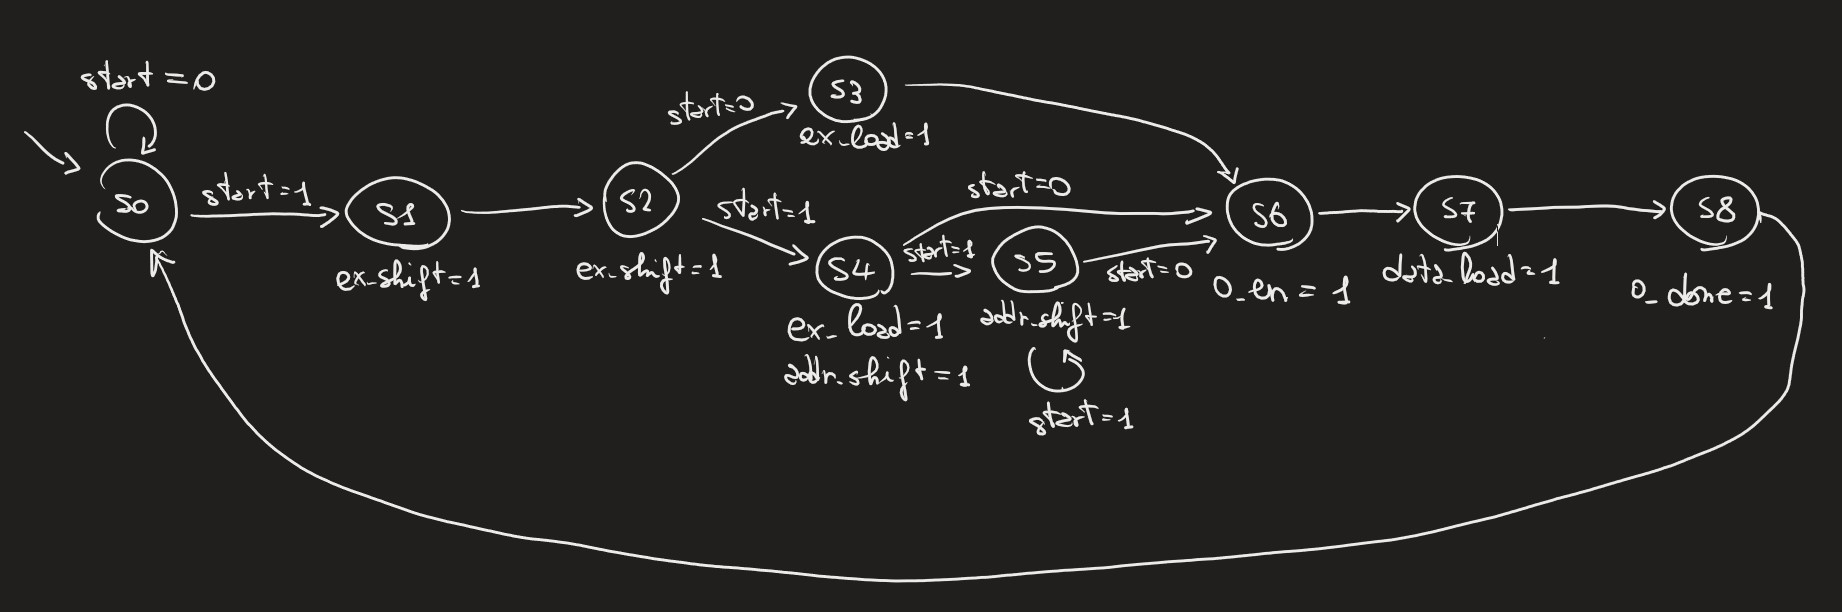 start=0
S0
start=1
S1
ex_shift=1
S2
ex_shift=1
start=0
S3
ex_load=1
start=1
S4
ex_load=1
addr_shift=1
start=0
start=1
S5
addr_shift=1
start=1
start=0
S6
o_en=1
S7
data_load=1
S8
o_done=1